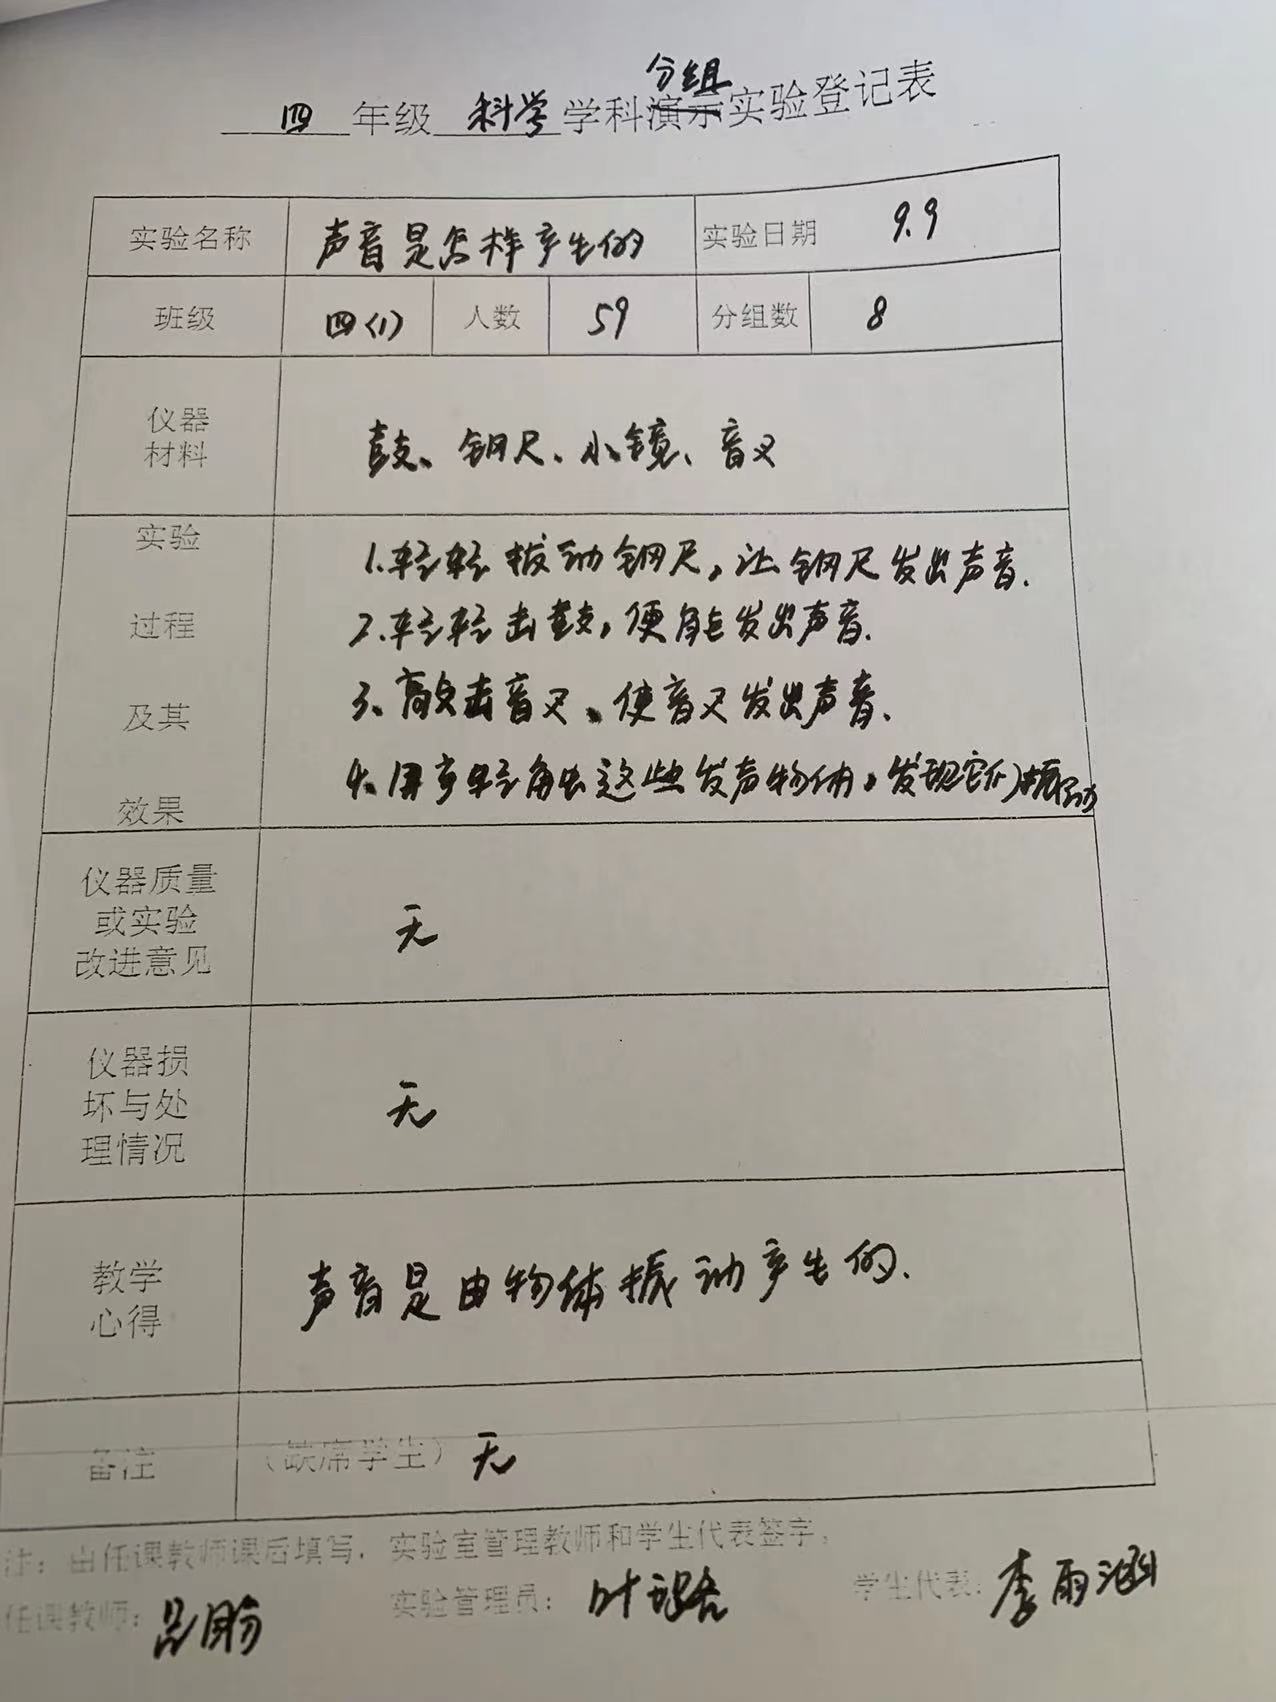 分组
四 年级 科学 学科演示实验登记表
实验名称 声音是怎样产生的 实验日期 9.9
班级 四(1) 人数 59 分组数 8
仪器
材料
鼓、钢尺、小镜、音叉
实验
过程
及其
效果
1.轻轻拨动钢尺,让钢尺发出声音.
2.轻轻击鼓,便能发出声音.
3、敲击音叉、使音叉发出声音.
4.用手轻触这些发声物体,发现它们振动
仪器质量
或实验
改进意见
无
仪器损
坏与处
理情况
无
教学
心得
声音是由物体振动产生的.
备注 (缺席学生) 无
注:由任课教师课后填写,实验室管理教师和学生代表签字。
任课教师: 实验管理员: 叶 学生代表: 李雨涵